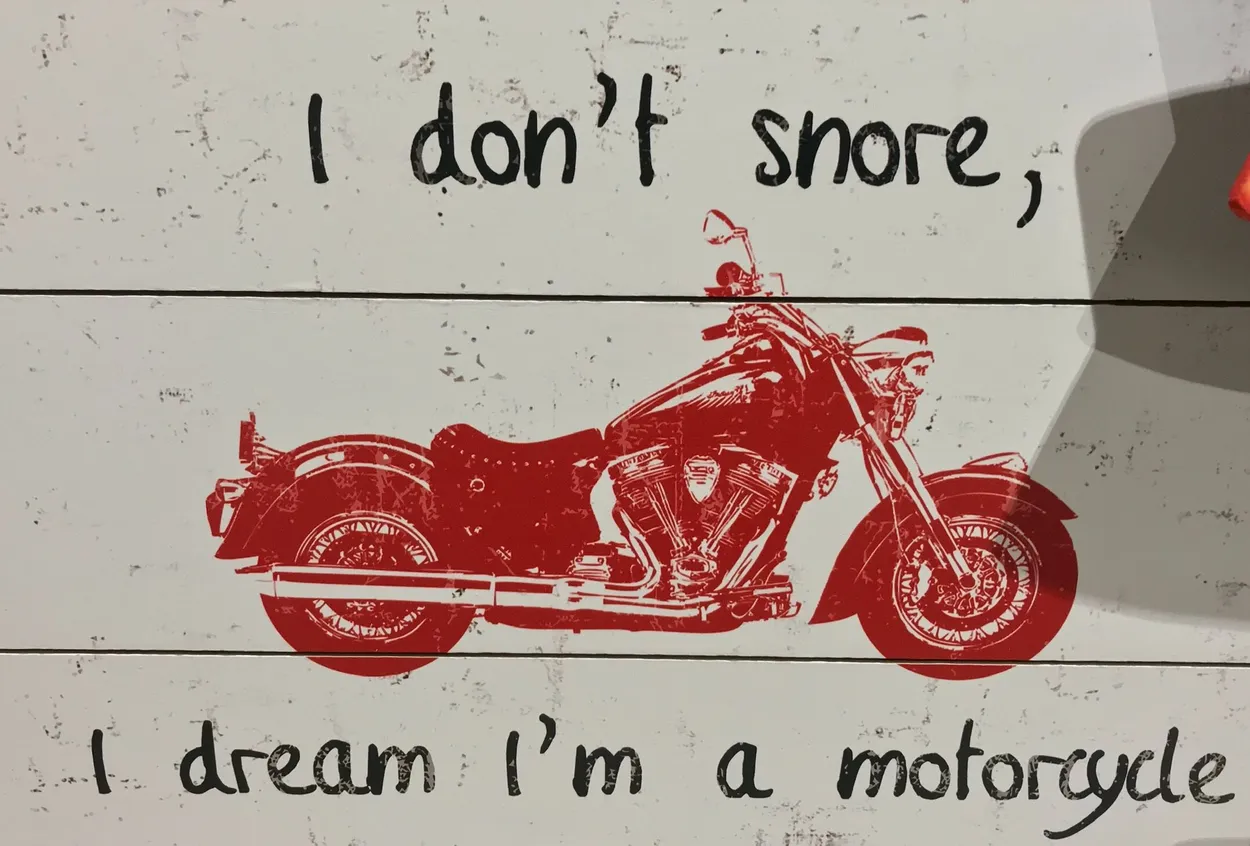 I don't snore,
I dream I'm a motorcycle